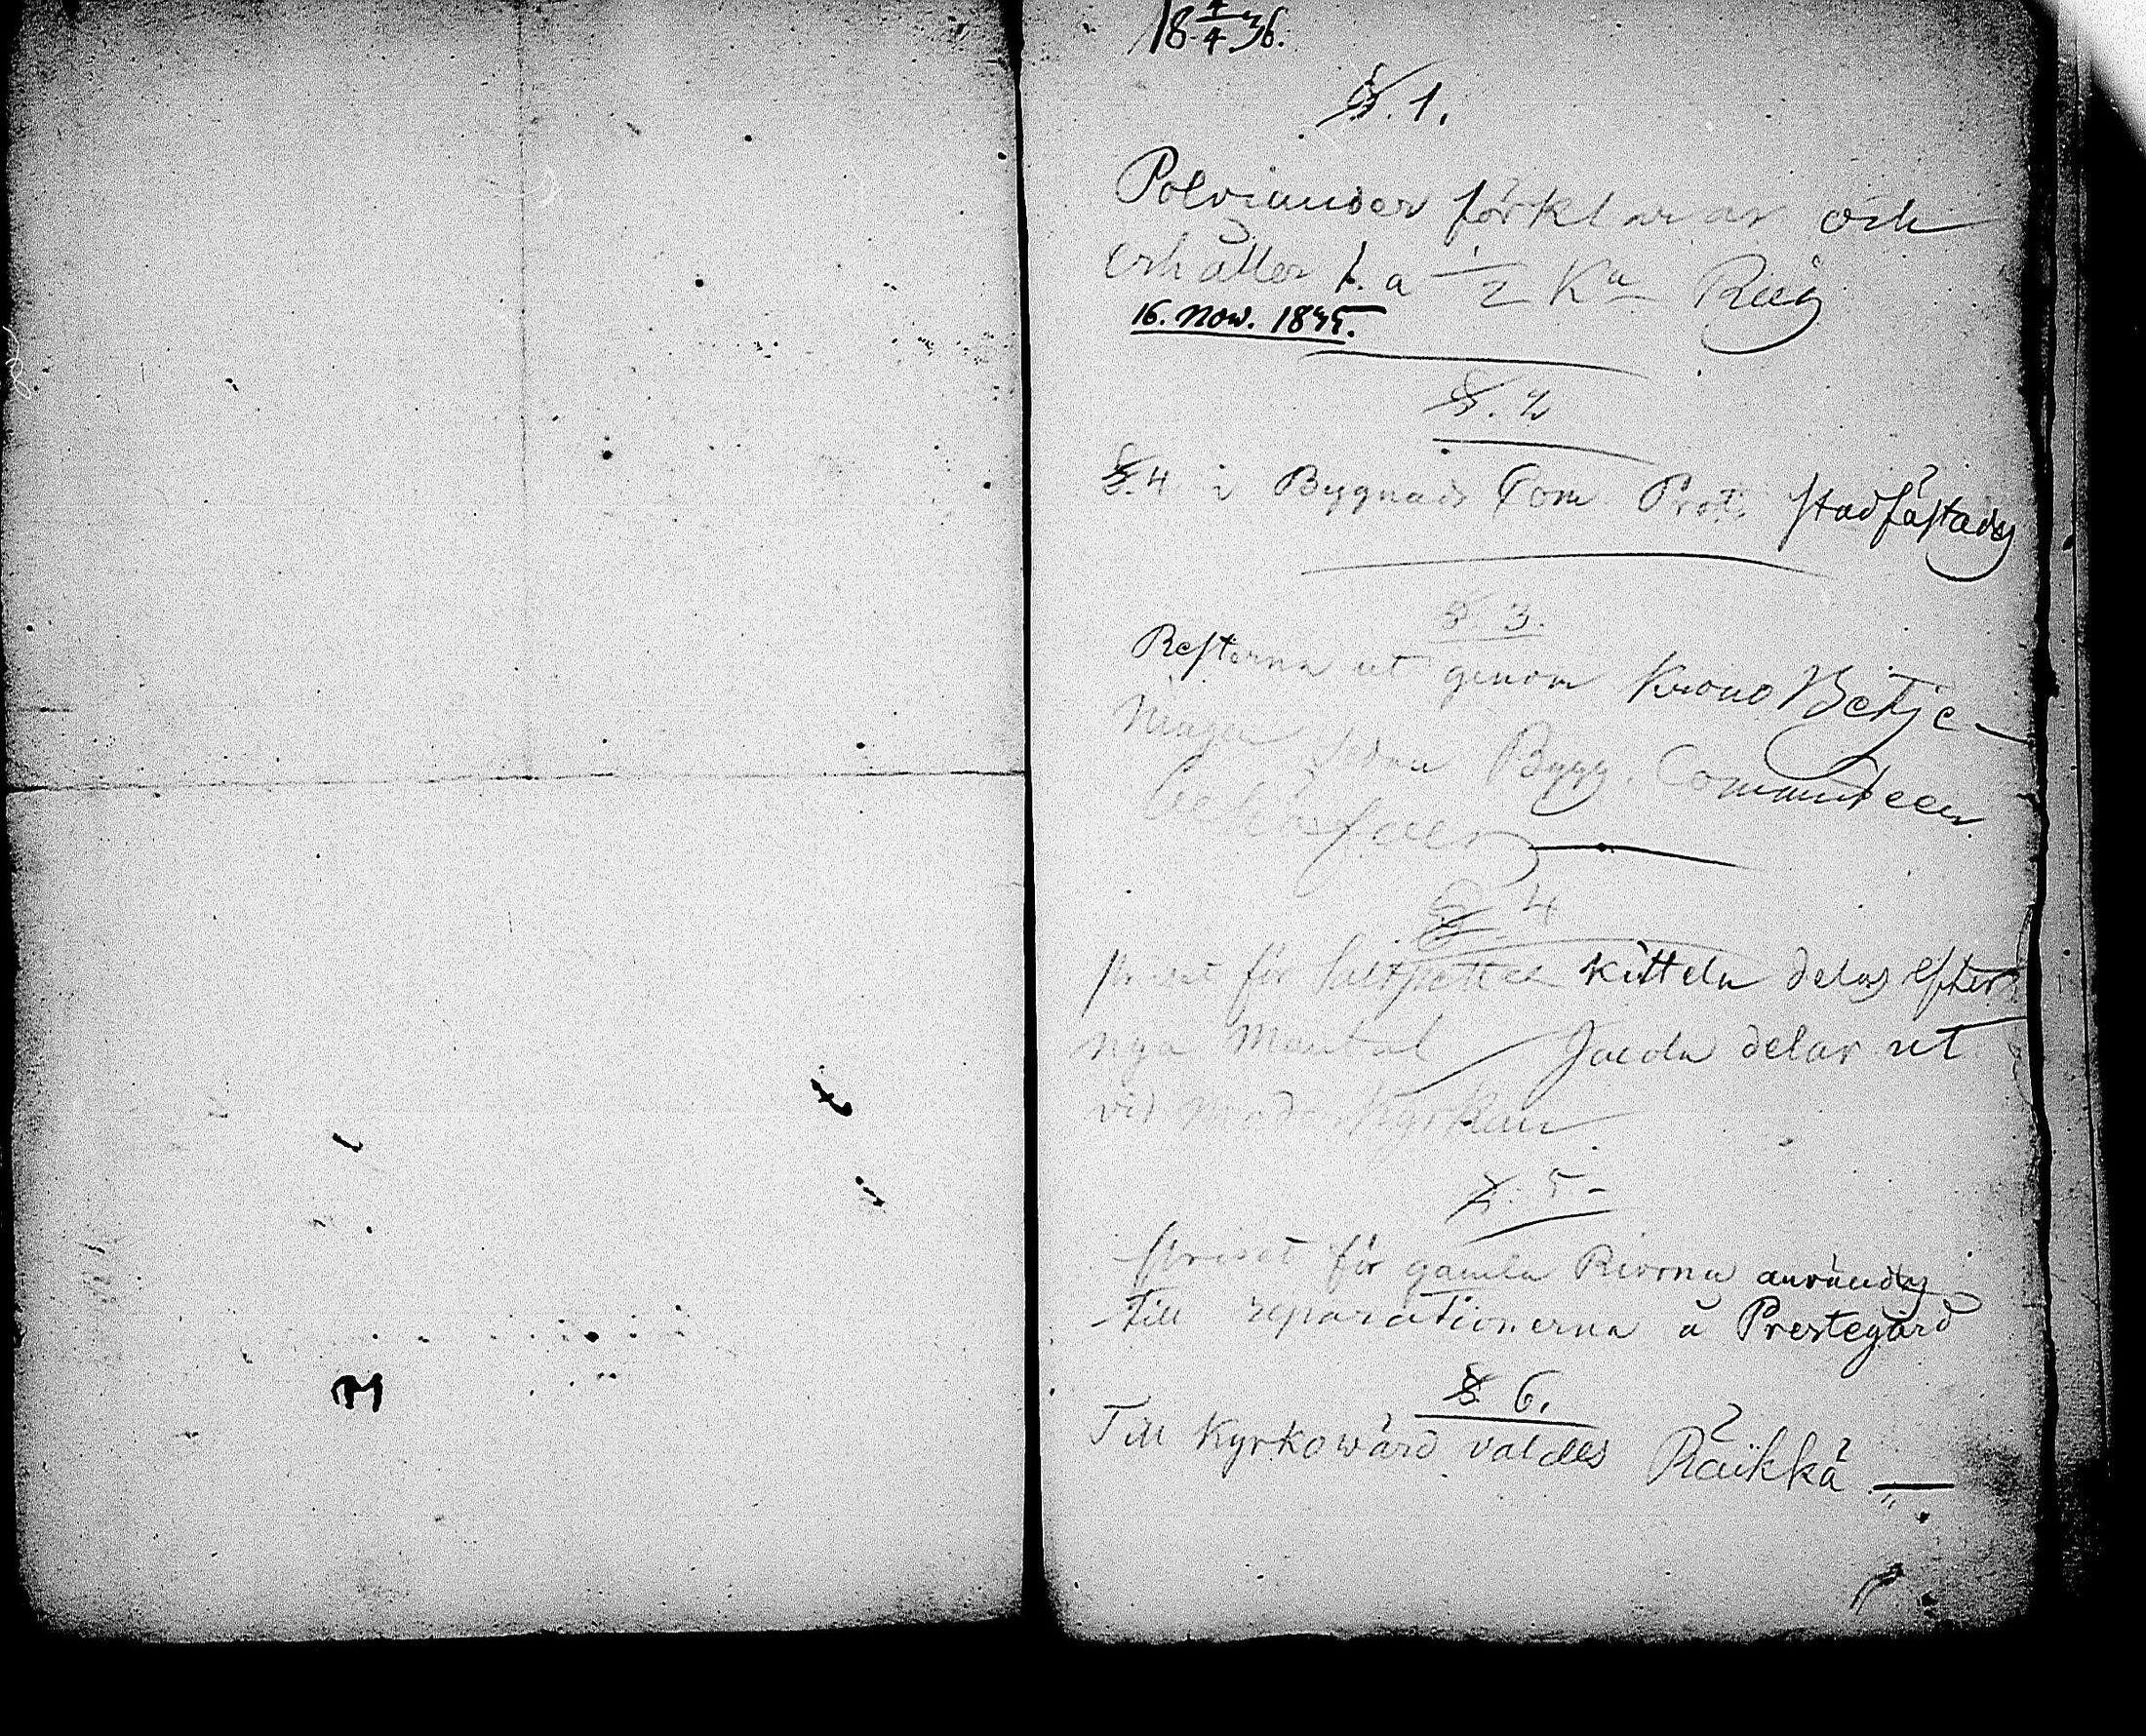 18 4/4 36.
§. 1.
Polviander förklarar och
erhåller f. a 1/2 Ka Råg
16. Nov. 1835.
§. 2
§. 4 i Bygnads Com Prot. stadfästades
§ 3.
Resterna ut genom Krono Betje-
ninge sedan Bygg. Committeen
§ 4
priset för Saltpetter kitteln delas efter
nya Mantal Jacola delar ut
vid Moder Kyrkan
§. 5-
priset för gamla Riorna användes
till reparationerna å Prestegård
§ 6.
Till Kyrkowärd valdes Räikkä